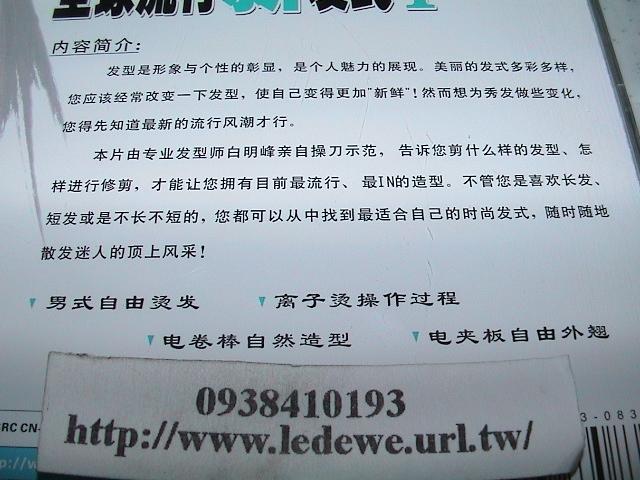 全球流行 发式 1
内容简介：
发型是形象与个性的彰显，是个人魅力的展现。美丽的发式多彩多样，
您应该经常改变一下发型，使自己变得更加"新鲜"！然而想为秀发做些变化，
您得先知道最新的流行风潮才行。
本片由专业发型师白明峰亲自操刀示范，告诉您剪什么样的发型、怎
样进行修剪，才能让您拥有目前最流行、最IN的造型。不管您是喜欢长发、
短发或是不长不短的，您都可以从中找到最适合自己的时尚发式，随时随地
散发迷人的顶上风采！
男式自由烫发 离子烫操作过程
电卷棒自然造型 电夹板自由外翘
0938410193
3-083
RC CN-
http://www.ledewe.url.tw/
p://w